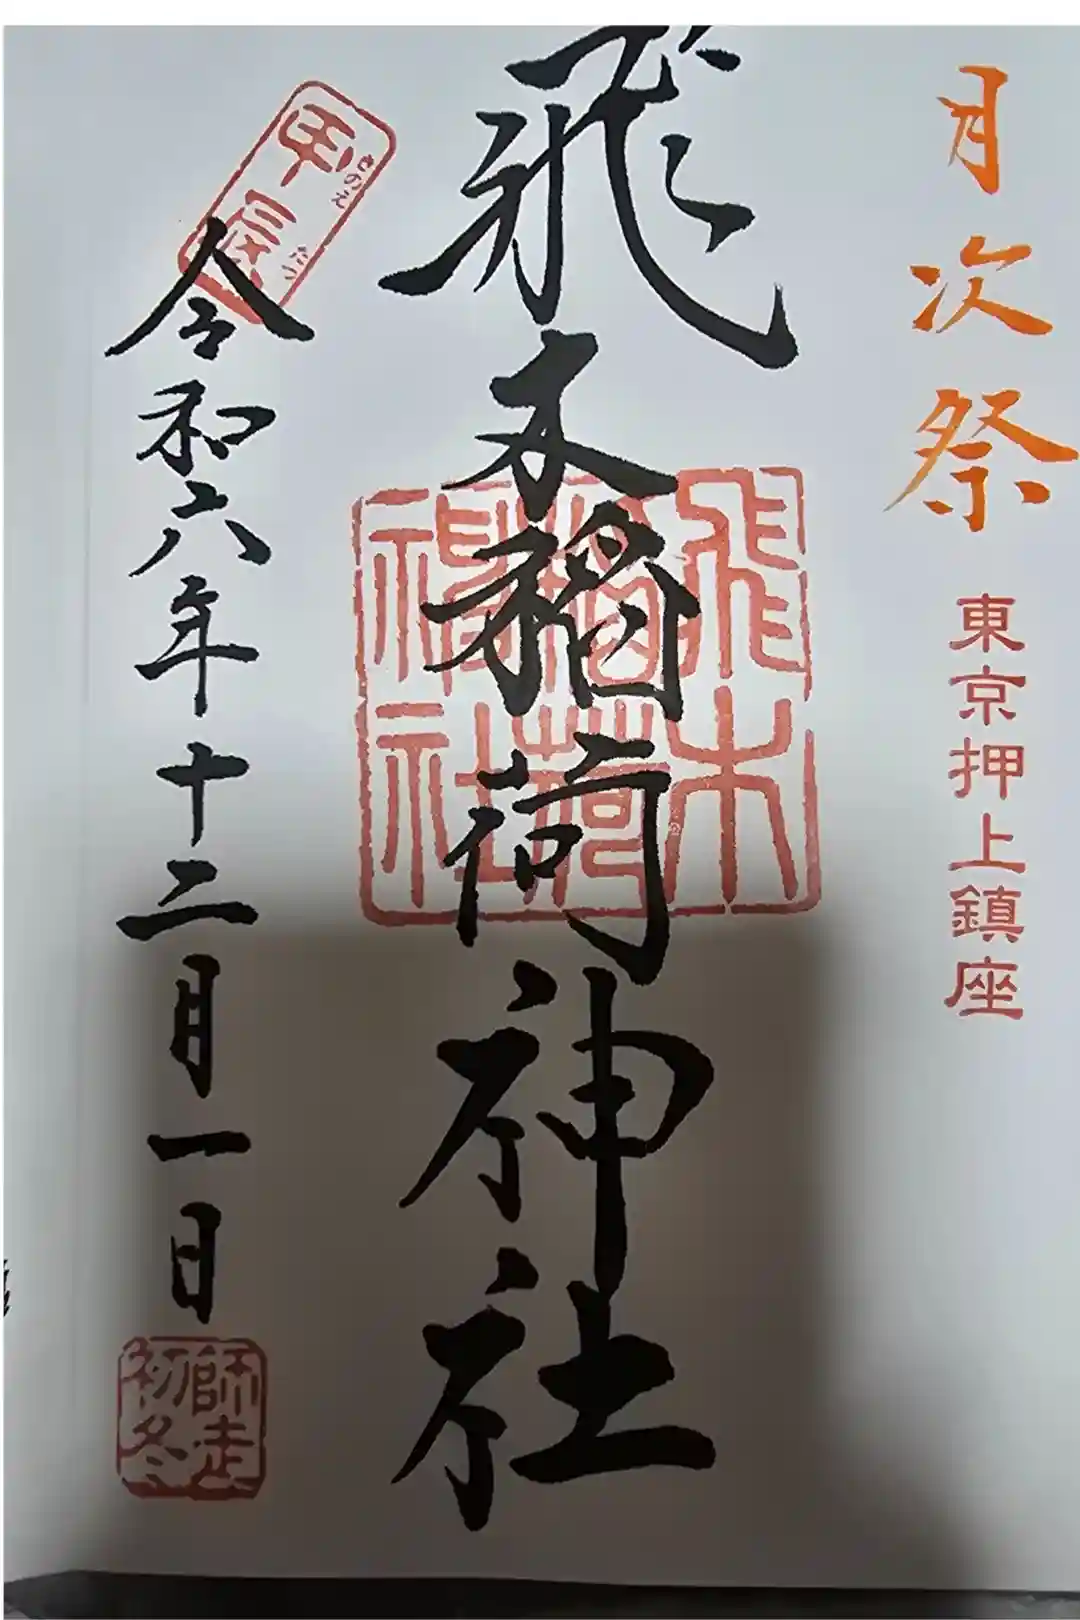 月次祭
東京押上鎮座
飛木稲荷神社
飛木
稲荷
神社
甲辰
きのえ たつ
令和六年十二月一日
師走
初冬